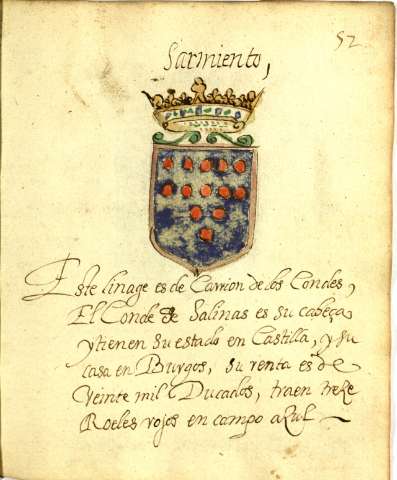 52
Sarmiento,
Este linage es de Carrion de los Condes,
El Conde de Salinas es su cabeça
y tienen su estado en Castilla, y su
casa en Burgos, su renta es de
Veinte mil Ducados, traen treze
Roeles rojos en campo azul